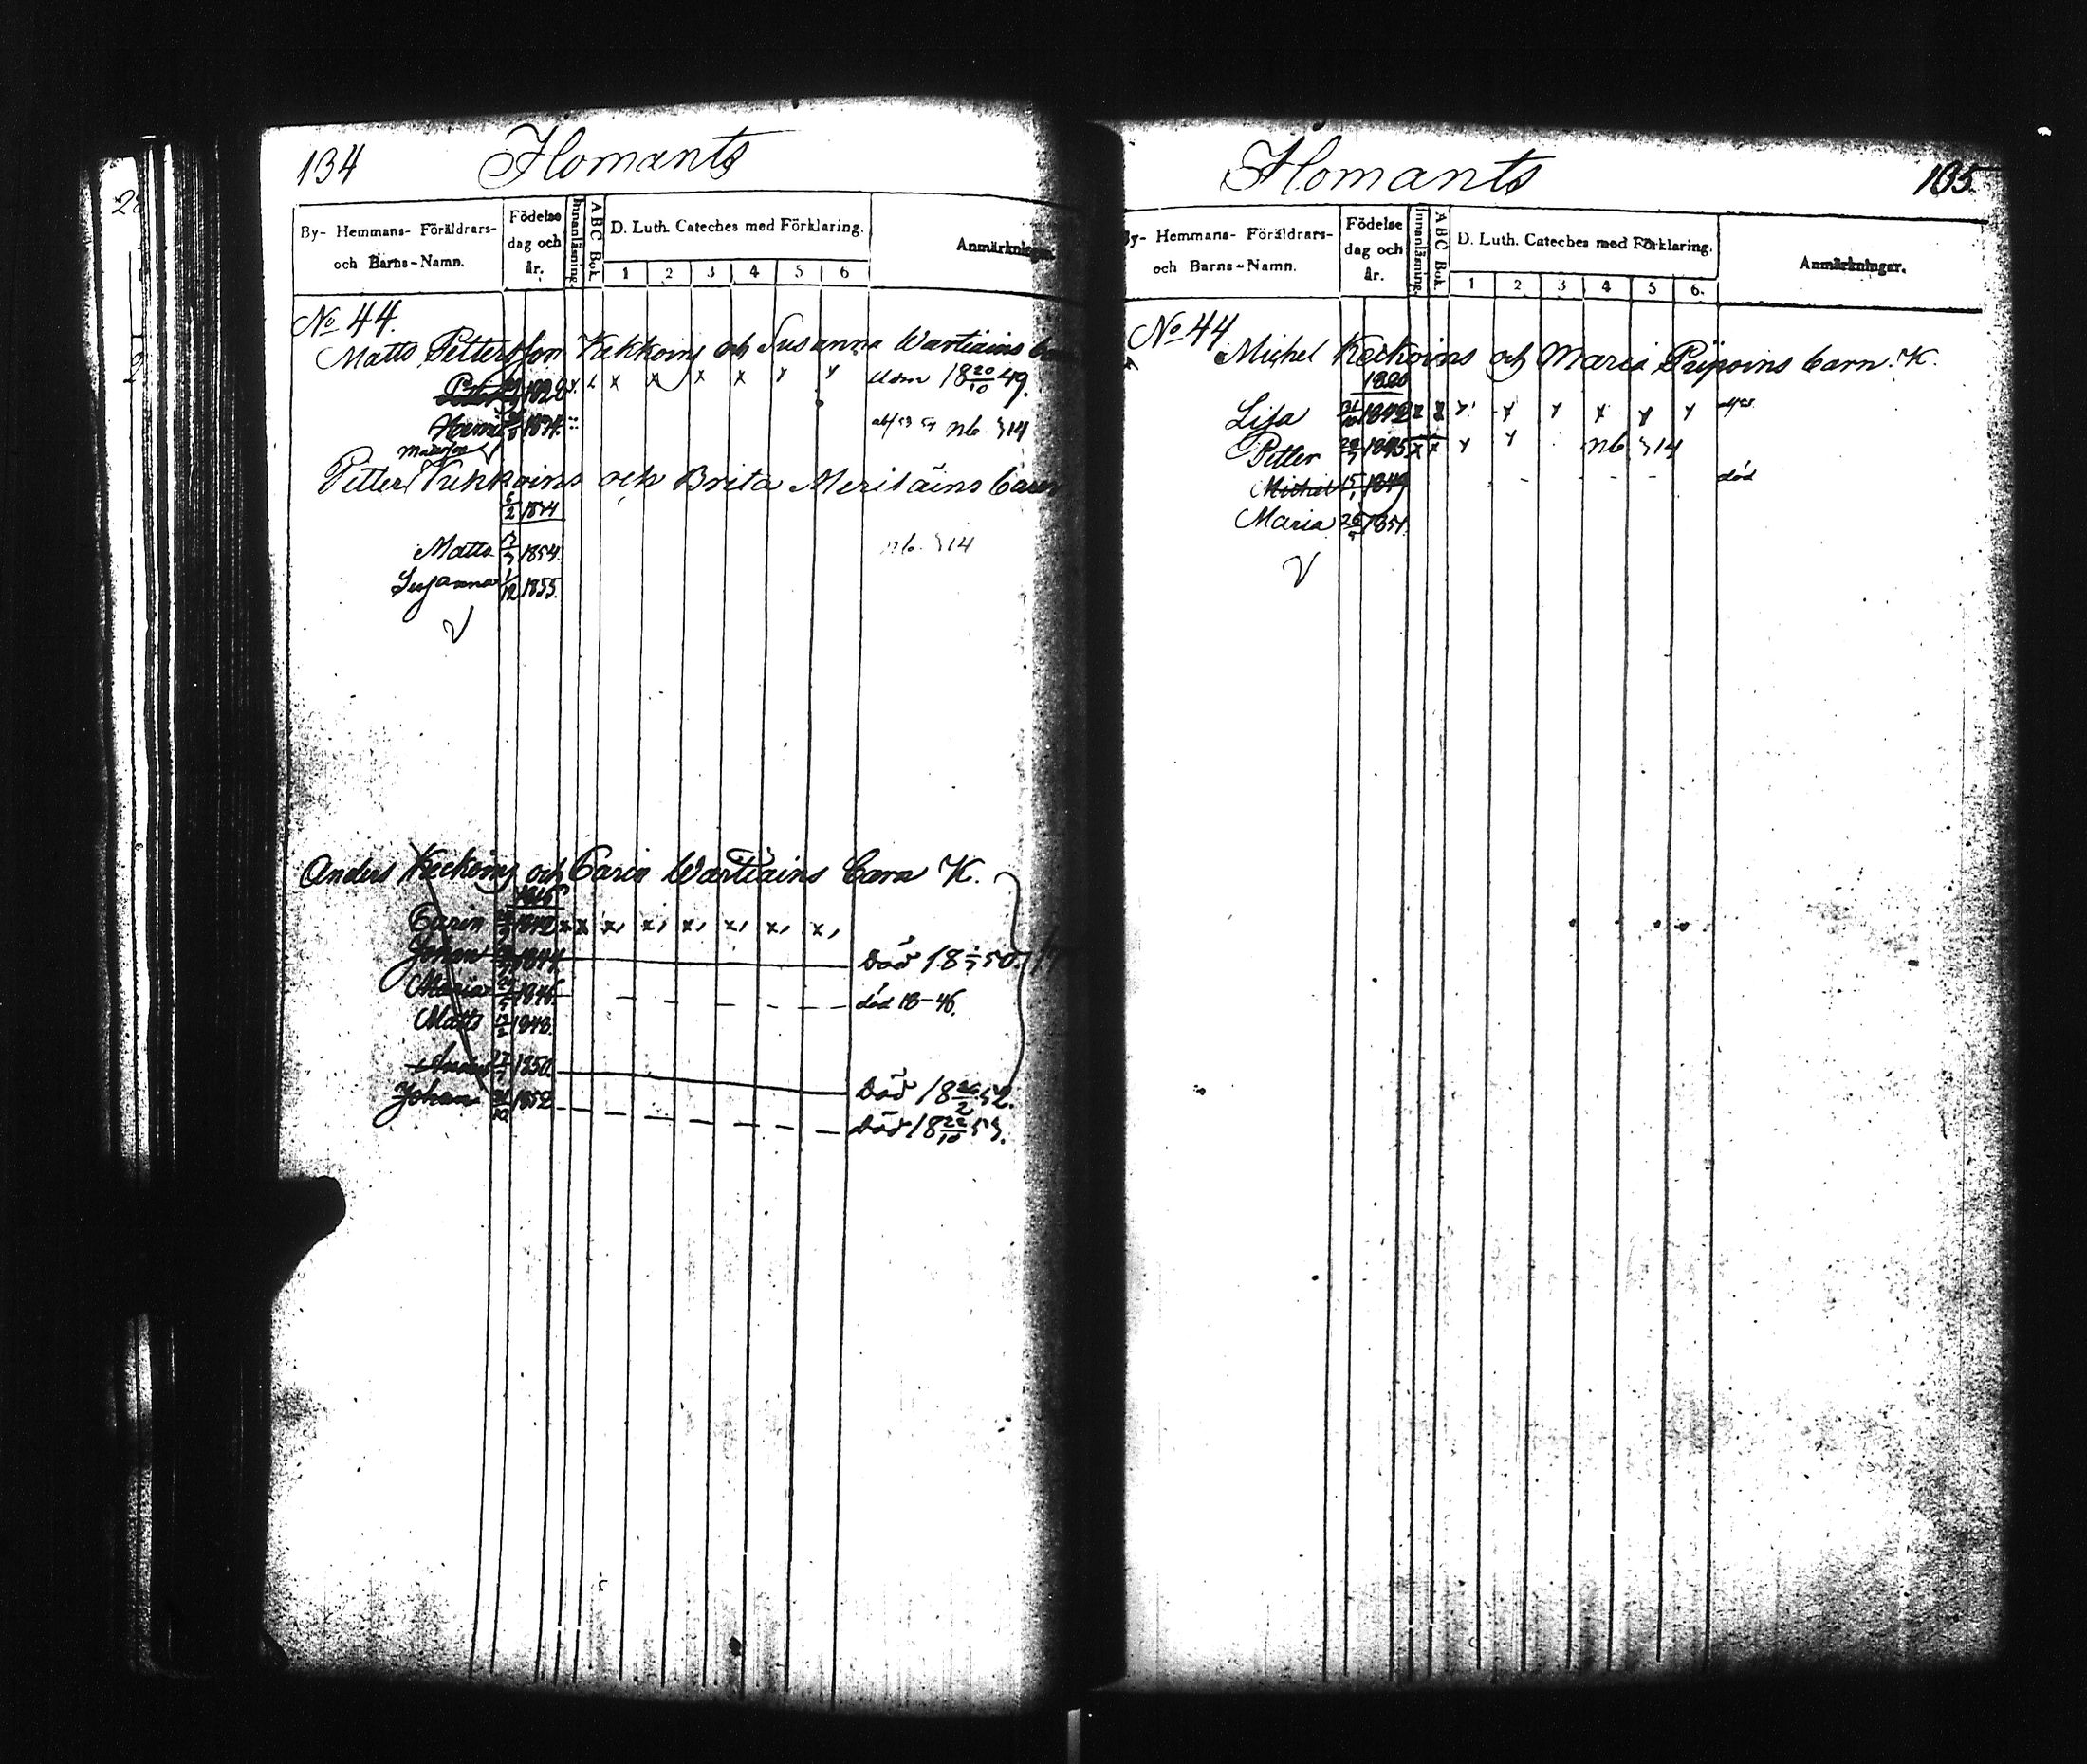 134 Ilomants
By- Hemmans- Föräldrars- och Barns-Namn. Födelse dag och år. Innanläsning. ABC Bok. D. Luth. Cateches med Förklaring. Anmärkningar.
1 2 3 4 5 6
No 44.
Matts Pettersson Kekkoins och Susanna Wartiains barn
1828 x x x x x x x 18 20/10 49.
nb. 14
Mattsson
Petter Kekkoins och Brita Meriläins barn
6/2 1844
Matts 1854. nb. 14
Susanna 1/12 1855.
Anders Keckoins och Carin Wartiains barn K.
Carin 1842 x x x, x, x, x, x, x,
Johan 1844 död 18 50.
Maria 1846 död 18-46.
Matts 1848.
1850. död 18 26/2 52.
Johan 1852 död 18 22/10 53.
Ilomants 135
By- Hemmans- Föräldrars- och Barns-Namn. Födelse dag och år. Innanläsning. ABC Bok. D. Luth. Cateches med Förklaring. Anmärkningar.
1 2 3 4 5 6.
No 44
Michel Keckoins och Maria Piipoins barn. K.
1820
Lisa 1842 x x x x x x x x
Petter 1845 x x x x nb. 14
Michel 15/1 1849 död
Maria 1851.